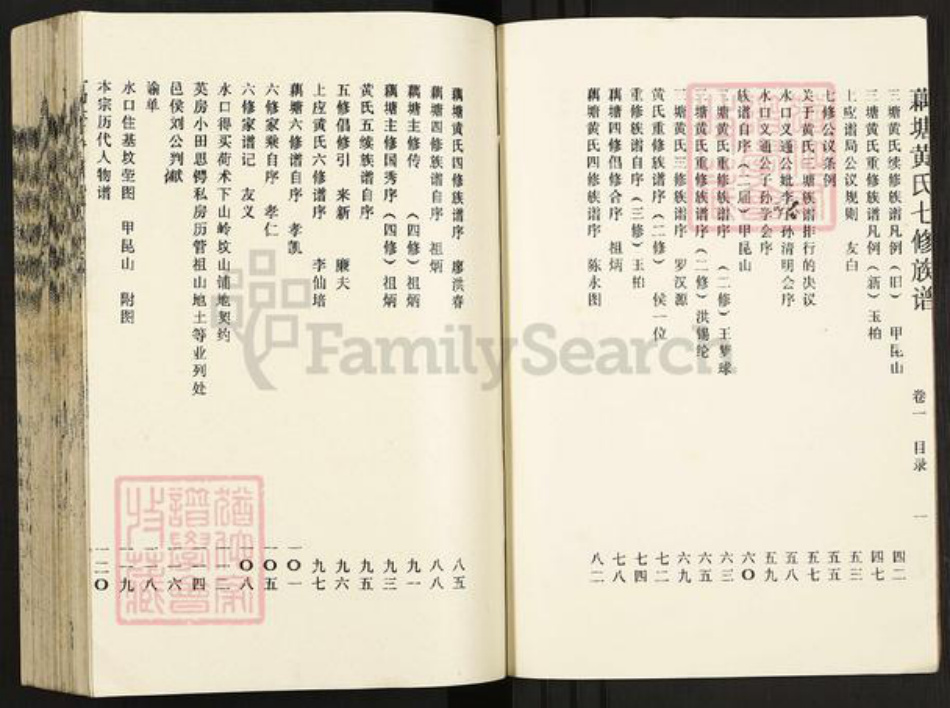 藕塘黄氏七修族谱 卷一 目录 一
三塘黄氏续修族谱凡例(旧) 甲昆山 四二
三塘黄氏重修族谱凡例(新)玉柏 四七
上应谱局公议规则 友白 五三
七修公议条例 五五
关于黄氏三塘族谱排行的决议 五七
水口义通公妣李 孙清明会序 五八
水口义通公子孙学会序 五九
族谱自序(二届)甲昆山 六〇
三塘黄氏重修族谱自序(二修)王 球 六三
三塘黄氏重修族谱序(二修)洪锡纶 六五
三塘黄氏三修族谱序 罗汉源 六九
黄氏重修族谱序(二修) 侯一位 七二
重修族谱自序(三修)玉柏 七四
藕塘四修倡修合序 祖炳 七八
藕塘黄氏四修族谱序 陈永图 八二
藕塘黄氏四修族谱序 廖洪春 八五
藕塘四修族谱自序 祖炳 八八
藕塘主修传 (四修)祖炳 九一
藕塘主修国秀序(四修)祖炳 九三
黄氏五续族谱自序 九五
五修倡修引 来新 廉夫 九六
上应黄氏六修谱序 李仙培 九七
藕塘六修谱自序 孝凯 一〇一
六修家乘自序 孝仁 一〇五
六修家谱记 友义 一〇八
水口得买荷术下山岭坟山铺地契约 一一二
英房小田思锷私房历管祖山地土等业列处 一一四
邑侯刘公判献 一一六
谕单 一一八
水口住基坟茔图 甲昆山 附图 一一九
本宗历代人物谱 一二〇
FamilySearch